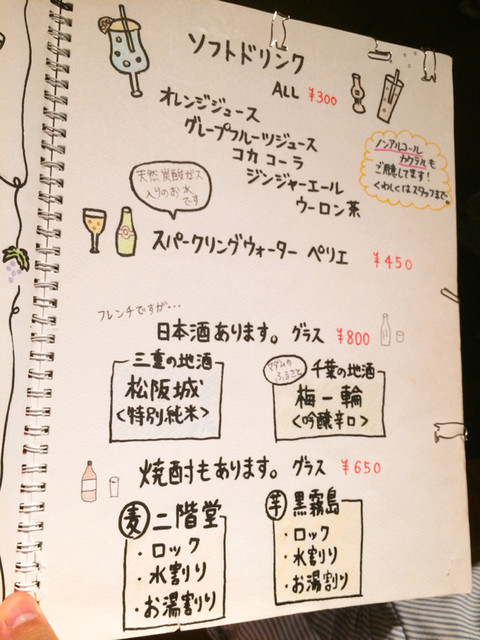 ソフトドリンク
ALL ¥300
オレンジジュース
グレープフルーツジュース
コカコーラ
ジンジャーエール
ウーロン茶
ノンアルコール
カクテルも
ご用意してます!
くわしくはスタッフまで。
天然炭酸ガス
入りのお水
です
スパークリングウォーター ペリエ ¥450
フレンチですが...
日本酒あります。グラス ¥800
三重の地酒
松阪城
<特別純米>
マダムの
ふるさと
千葉の地酒
梅一輪
<吟醸辛口>
焼酎もあります。グラス ¥650
麦 二階堂
・ロック
・水割り
・お湯割り
芋 黒霧島
・ロック
・水割り
・お湯割り